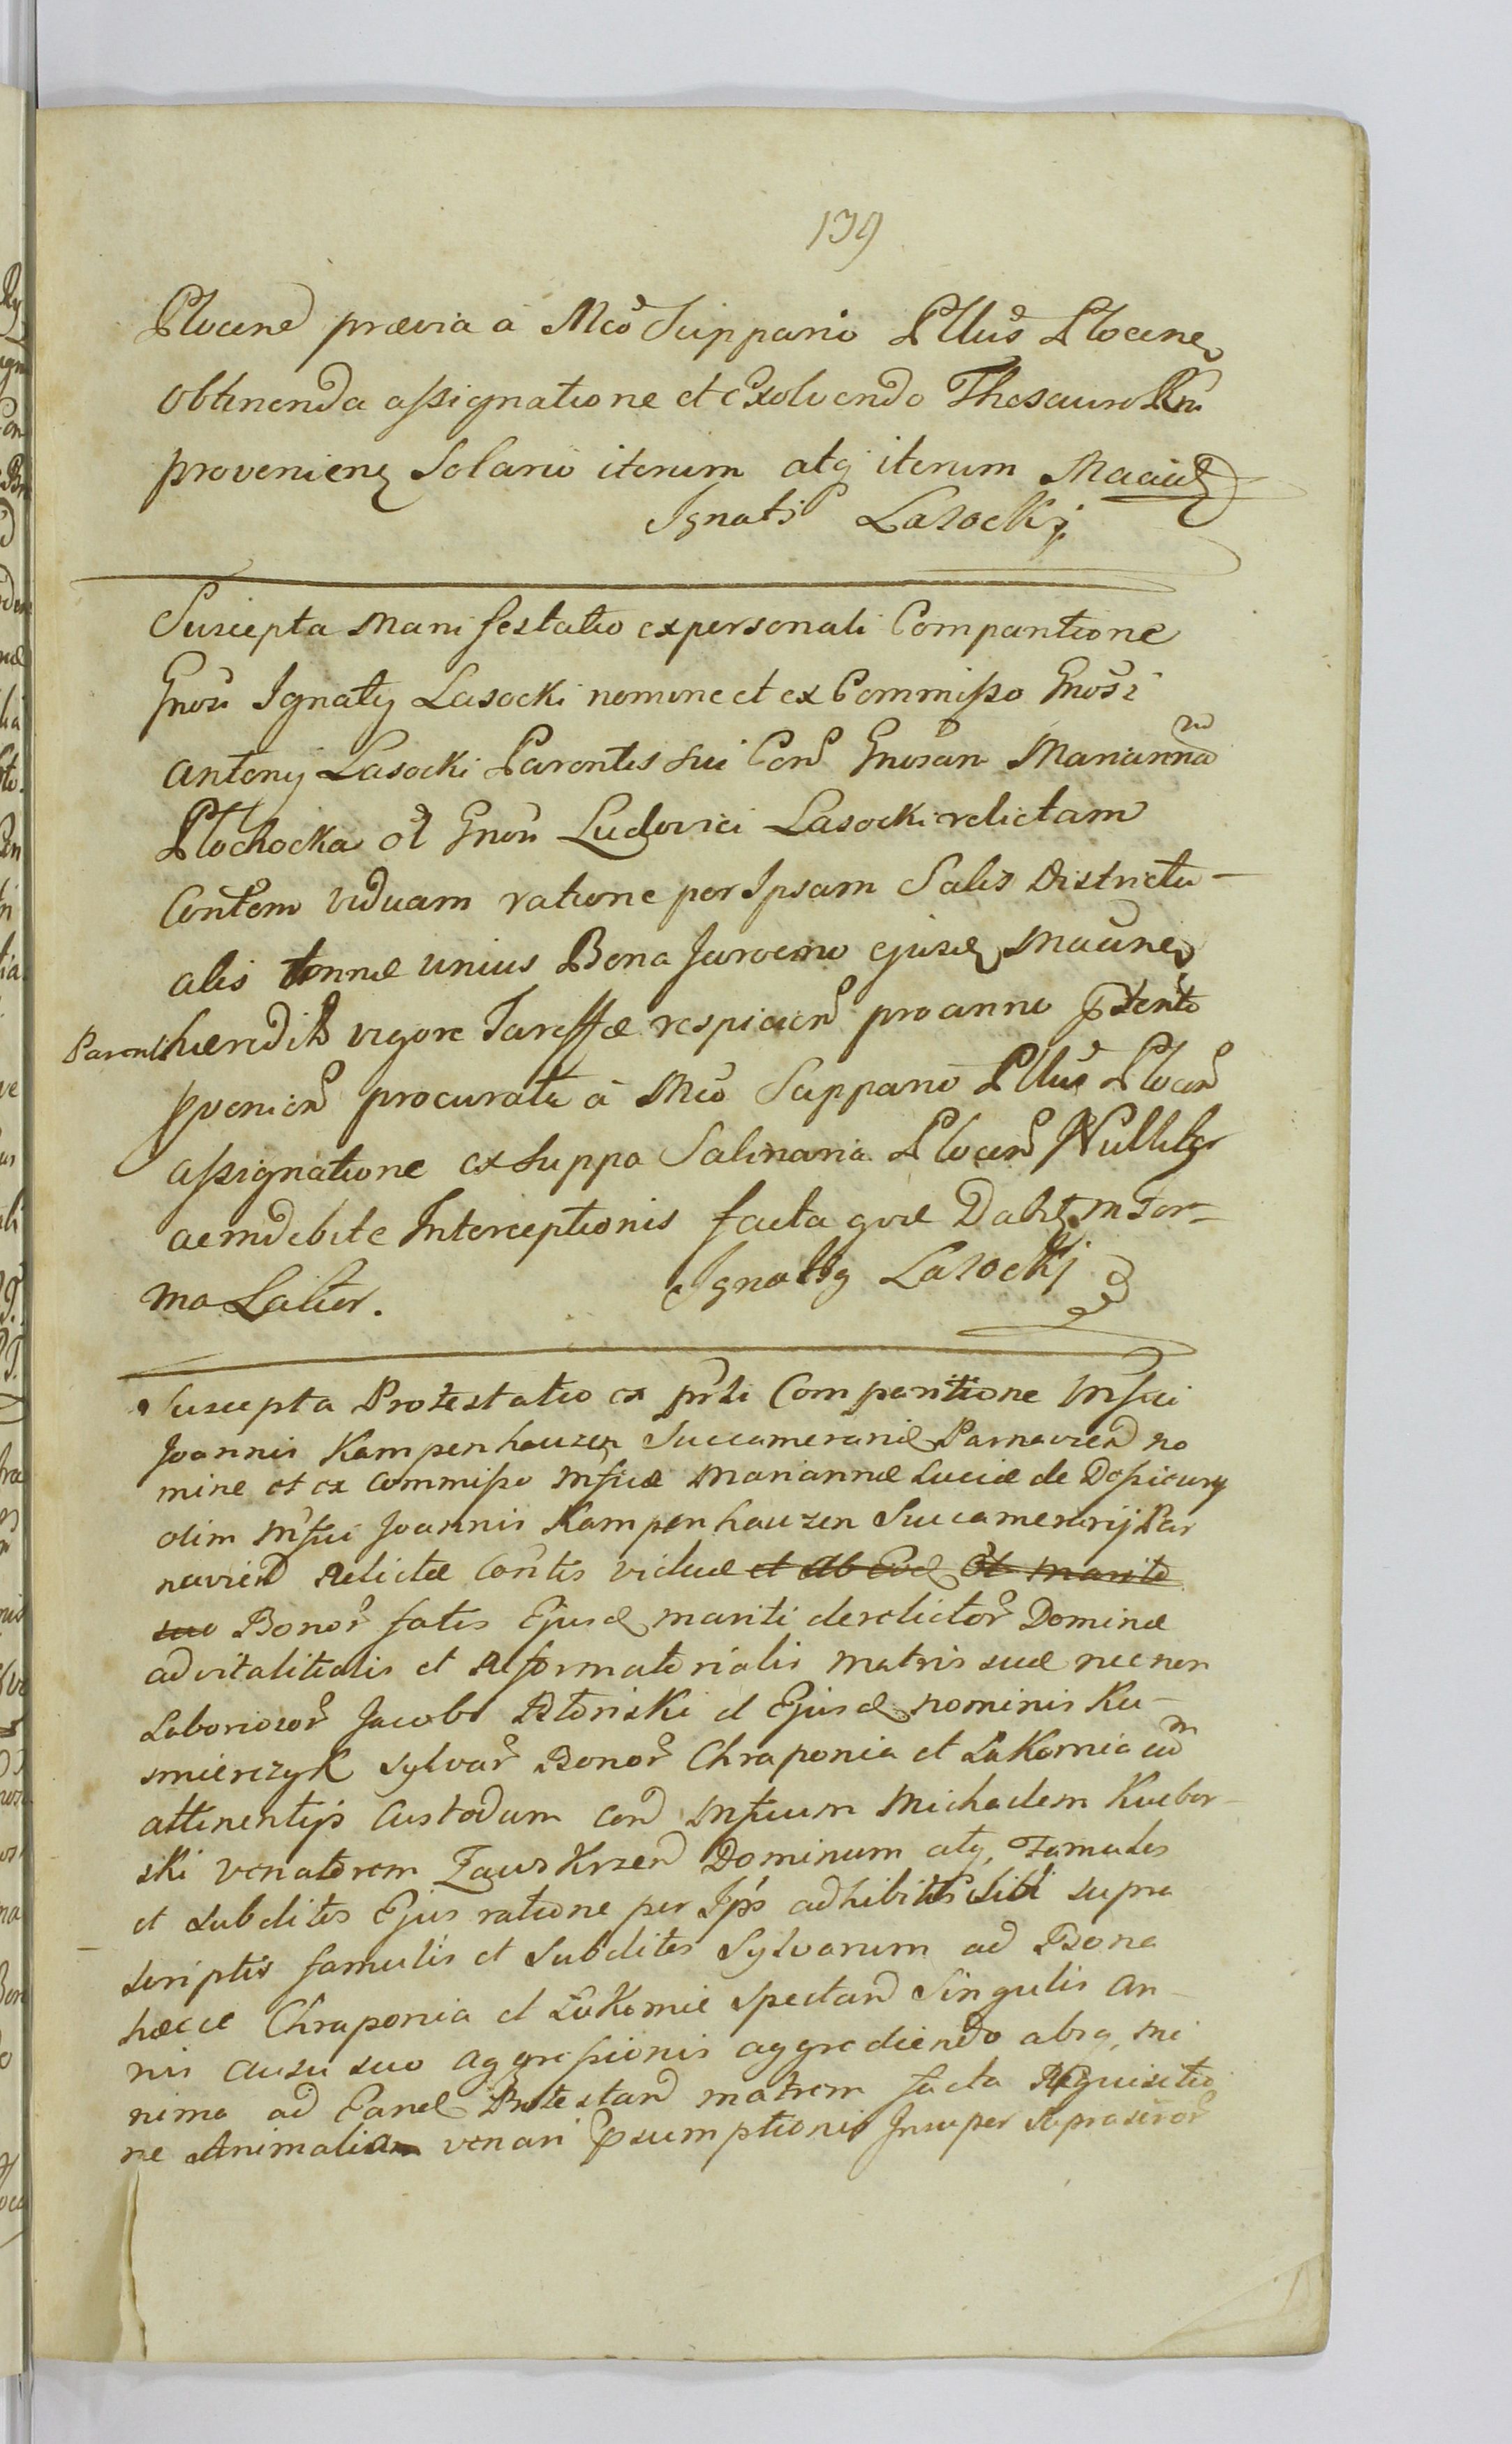 139
Plocen prævia à Mco Suppario Pllus Plocen
obtinenda assignatione et Exolvendo Thesauro Rni
provenien Solario iterum atq iterum
Ignati Lasocki
Suscepta Manifestatio ex personali Comparitione
Gnosi Ignaty Lasocki nomine et ex Commisso Gnosi
Antony Lasocki Parentis sui Con Gnosam Mariannam
Plochocka ol Gnosi Ludovici Lasocki relictam
Contem viduam ratione per Ipsam Salis Districtu-
alis tonnæ unius Bona Jaroemo ejusd
Parent hæredit vigore Tareffæ respicien pro anno
pvenien procurata à Mco Suppario Pllus Plocen
assignatione ex Suppa Salinaria Plocen Nulliter
ac indebite Interceptionis facta qvæ Dabit in For-
ma Latior. Ignatig Lasocki
Suscepta Protestatio ex prli Comparitione Mfici
Joannis Kampenhauzen Succamerarid Parnavien no
mine et ex commisso Mficæ Mariannæ Luciæ de
olim Mfici Joannis Kampenhauzen Succamerarij Par
navien Relictæ Contis viduæ et ab Eod Ol marito
suo Bonor fatis Ejusd mariti derelictor Dominæ
advitalitialis et Reformatorialis matris suæ necnon
Laboriosor Jacobi Płoński et Ejusd nominis Ku-
smierczyk Sylvar Bonor Chraponia et Łukomia eid
attinentijs Custodum con Mficum Michaelem Kuebor-
ski venatorem Zawskrzen Dominum atq, Famulos
et Subditos Ejus ratione per Ips adhibitis Sibi supra
scriptis famulis et Subditis Sylvarum ad Bona
hæcce Chraponia et Łukomie Spectan Singulis An-
nis ausu suo aggressionis aggrediendo absq, mi
nima ad Eand Protestan matrem facta Requisitio
ne Animalia venari Psumptionis Insuper